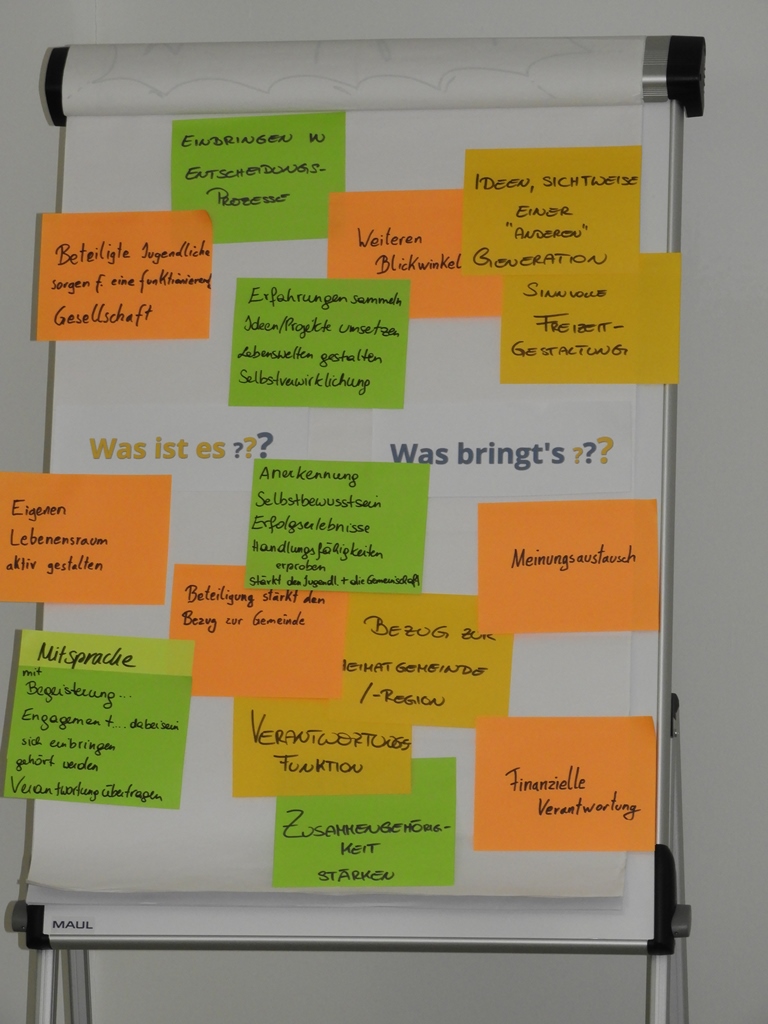 EINDRINGEN IN
ENTSCHEIDUNGS-
PROZESSE
IDEEN, SICHTWEISE
EINER
"ANDEREN"
GENERATION
Beteiligte Jugendliche
sorgen f. eine funktionierend
Gesellschaft
Weiteren
Blickwinkel
SINNVOLLE
FREIZEIT-
GESTALTUNG
Erfahrungen sammeln
Ideen/Projekte umsetzen
Lebenswelten gestalten
Selbstverwirklichung
Was ist es ???
Was bringt's ???
Eigenen
Lebensraum
aktiv gestalten
Anerkennung
Selbstbewusstsein
Erfolgserlebnisse
Handlungsfähigkeiten
erproben
stärkt den Jugendl. + die Gemeinschaft
Meinungsaustausch
Beteiligung stärkt den
Bezug zur Gemeinde
BEZUG ZUR
HEIMATGEMEINDE
/-REGION
Mitsprache
mit
Begeisterung...
Engagement.... dabei sein
sich einbringen
gehört werden
Verantwortung übertragen
VERANTWORTUNGS
FUNKTION
Finanzielle
Verantwortung
ZUSAMMENGEHÖRIG-
KEIT
STÄRKEN
MAUL